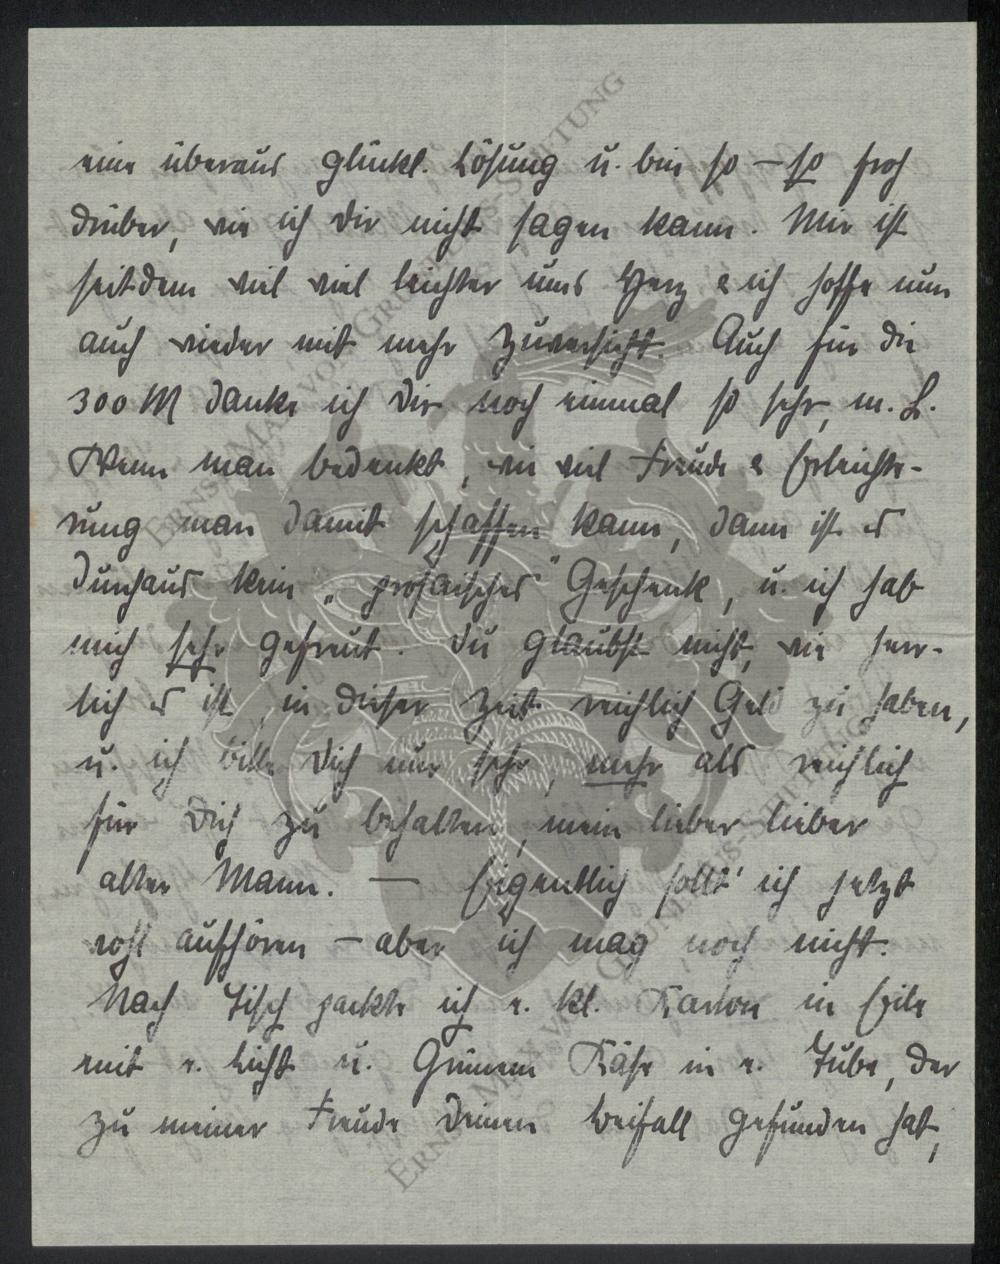 eine überaus glückl. Lösung u. bin so – so froh
drüber, wie ich Dir nicht sagen kann. Mir ist
seitdem viel viel leichter ums Herz & ich hoffe nun
auch wieder mit mehr Zuversicht. Auch für die
300 M danke ich Dir noch einmal so sehr, m. L.
Wenn man bedenkt, wie viel Freude & Erleichte-
rung man damit schaffen kann, dann ist es
durchaus kein „prosaisches" Geschenk, u. ich hab
mich sehr gefreut. Du glaubst nicht, wie herr-
lich es ist, in dieser Zeit reichlich Geld zu haben,
u. ich bitte Dich nur sehr, mehr als reichlich
für Dich zu behalten, mein lieber lieber
alter Mann. — Eigentlich sollt' ich jetzt
wohl aufhören – aber ich mag noch nicht.
Nach Tisch packte ich e. kl. Karton in Eile
mit e. Licht u. Grünem Käse in e. Tube, der
zu meiner Freude Deinen Beifall gefunden hat,
ERNST-MAX-VON-GRUNELIUS-STIFTUNG
ERNST-MAX-VON-GRUNELIUS-STIFTUNG